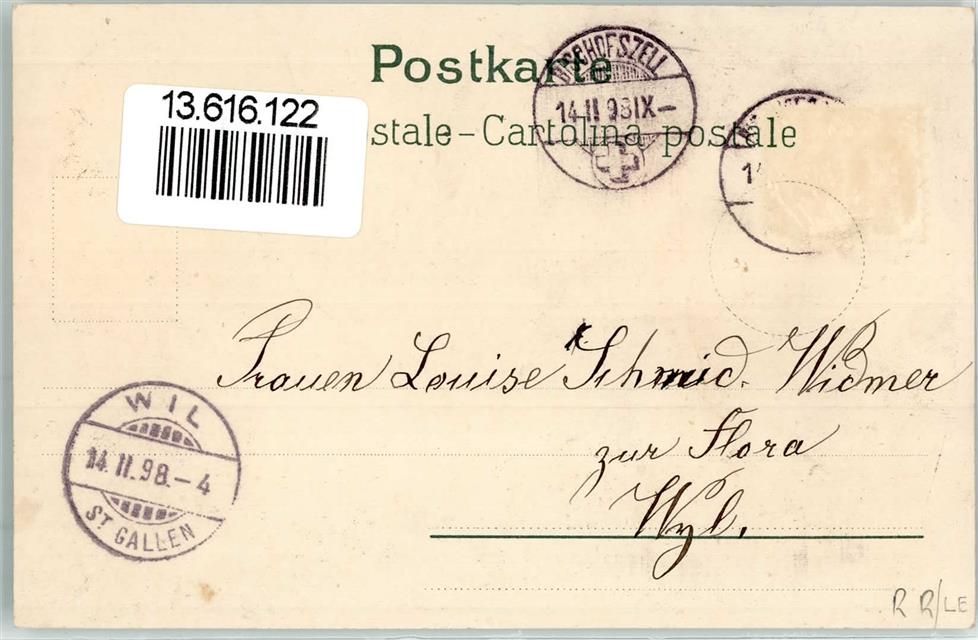 Postkarte
stale - Cartolina postale
13.616.122
BISCHOFSZELL
14.II.98 IX-
1
Frauen Louise Schmid. Widmer
zur Flora
Wyl.
WIL
14.II.98.-4
ST GALLEN
R R/LE